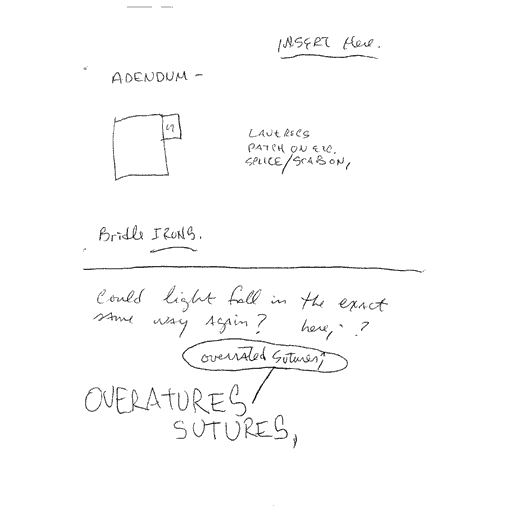 INSERT Here.
ADENDUM -
PATCH ON ETC.
SPLICE/SCAB ON,
Bridle IRONS.
Could light fall in the exact
same way again? here, ?
overrated sutures,
OVERATURES
SUTURES,